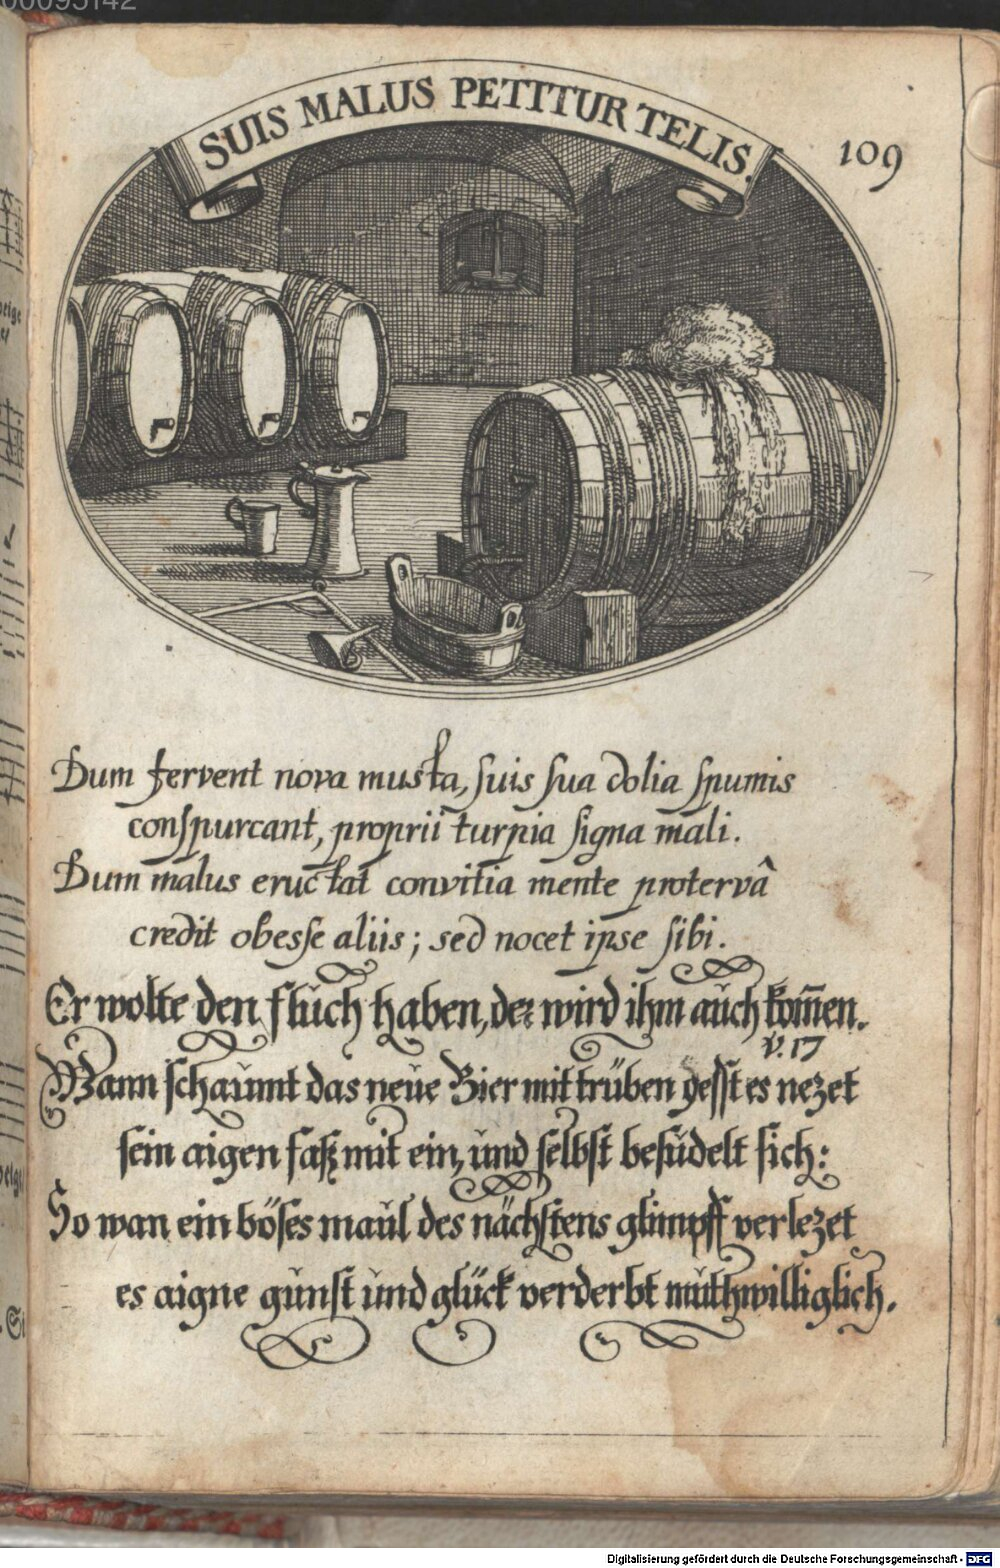 00095142
SUIS MALUS PETITUR TELIS.
109
Dum fervent nova musta, suis sua dolia spumis
conspurcant, proprii turpia signa mali.
Dum malus eructat convitia mente protervâ
credit obesse aliis; sed nocet ipse sibi.
Er wolte den fluch haben, der wird ihm auch kom̅en.
v. 17
Wann schaumt das neue Bier mit trüben gesst es nezet
sein aigen faß mit ein, und selbst besudelt sich:
So wan ein böses maul des nächstens glimpff verlezet
es aigne gunst und glück verderbt muthwilliglich.
Digitalisierung gefördert durch die Deutsche Forschungsgemeinschaft - DFG